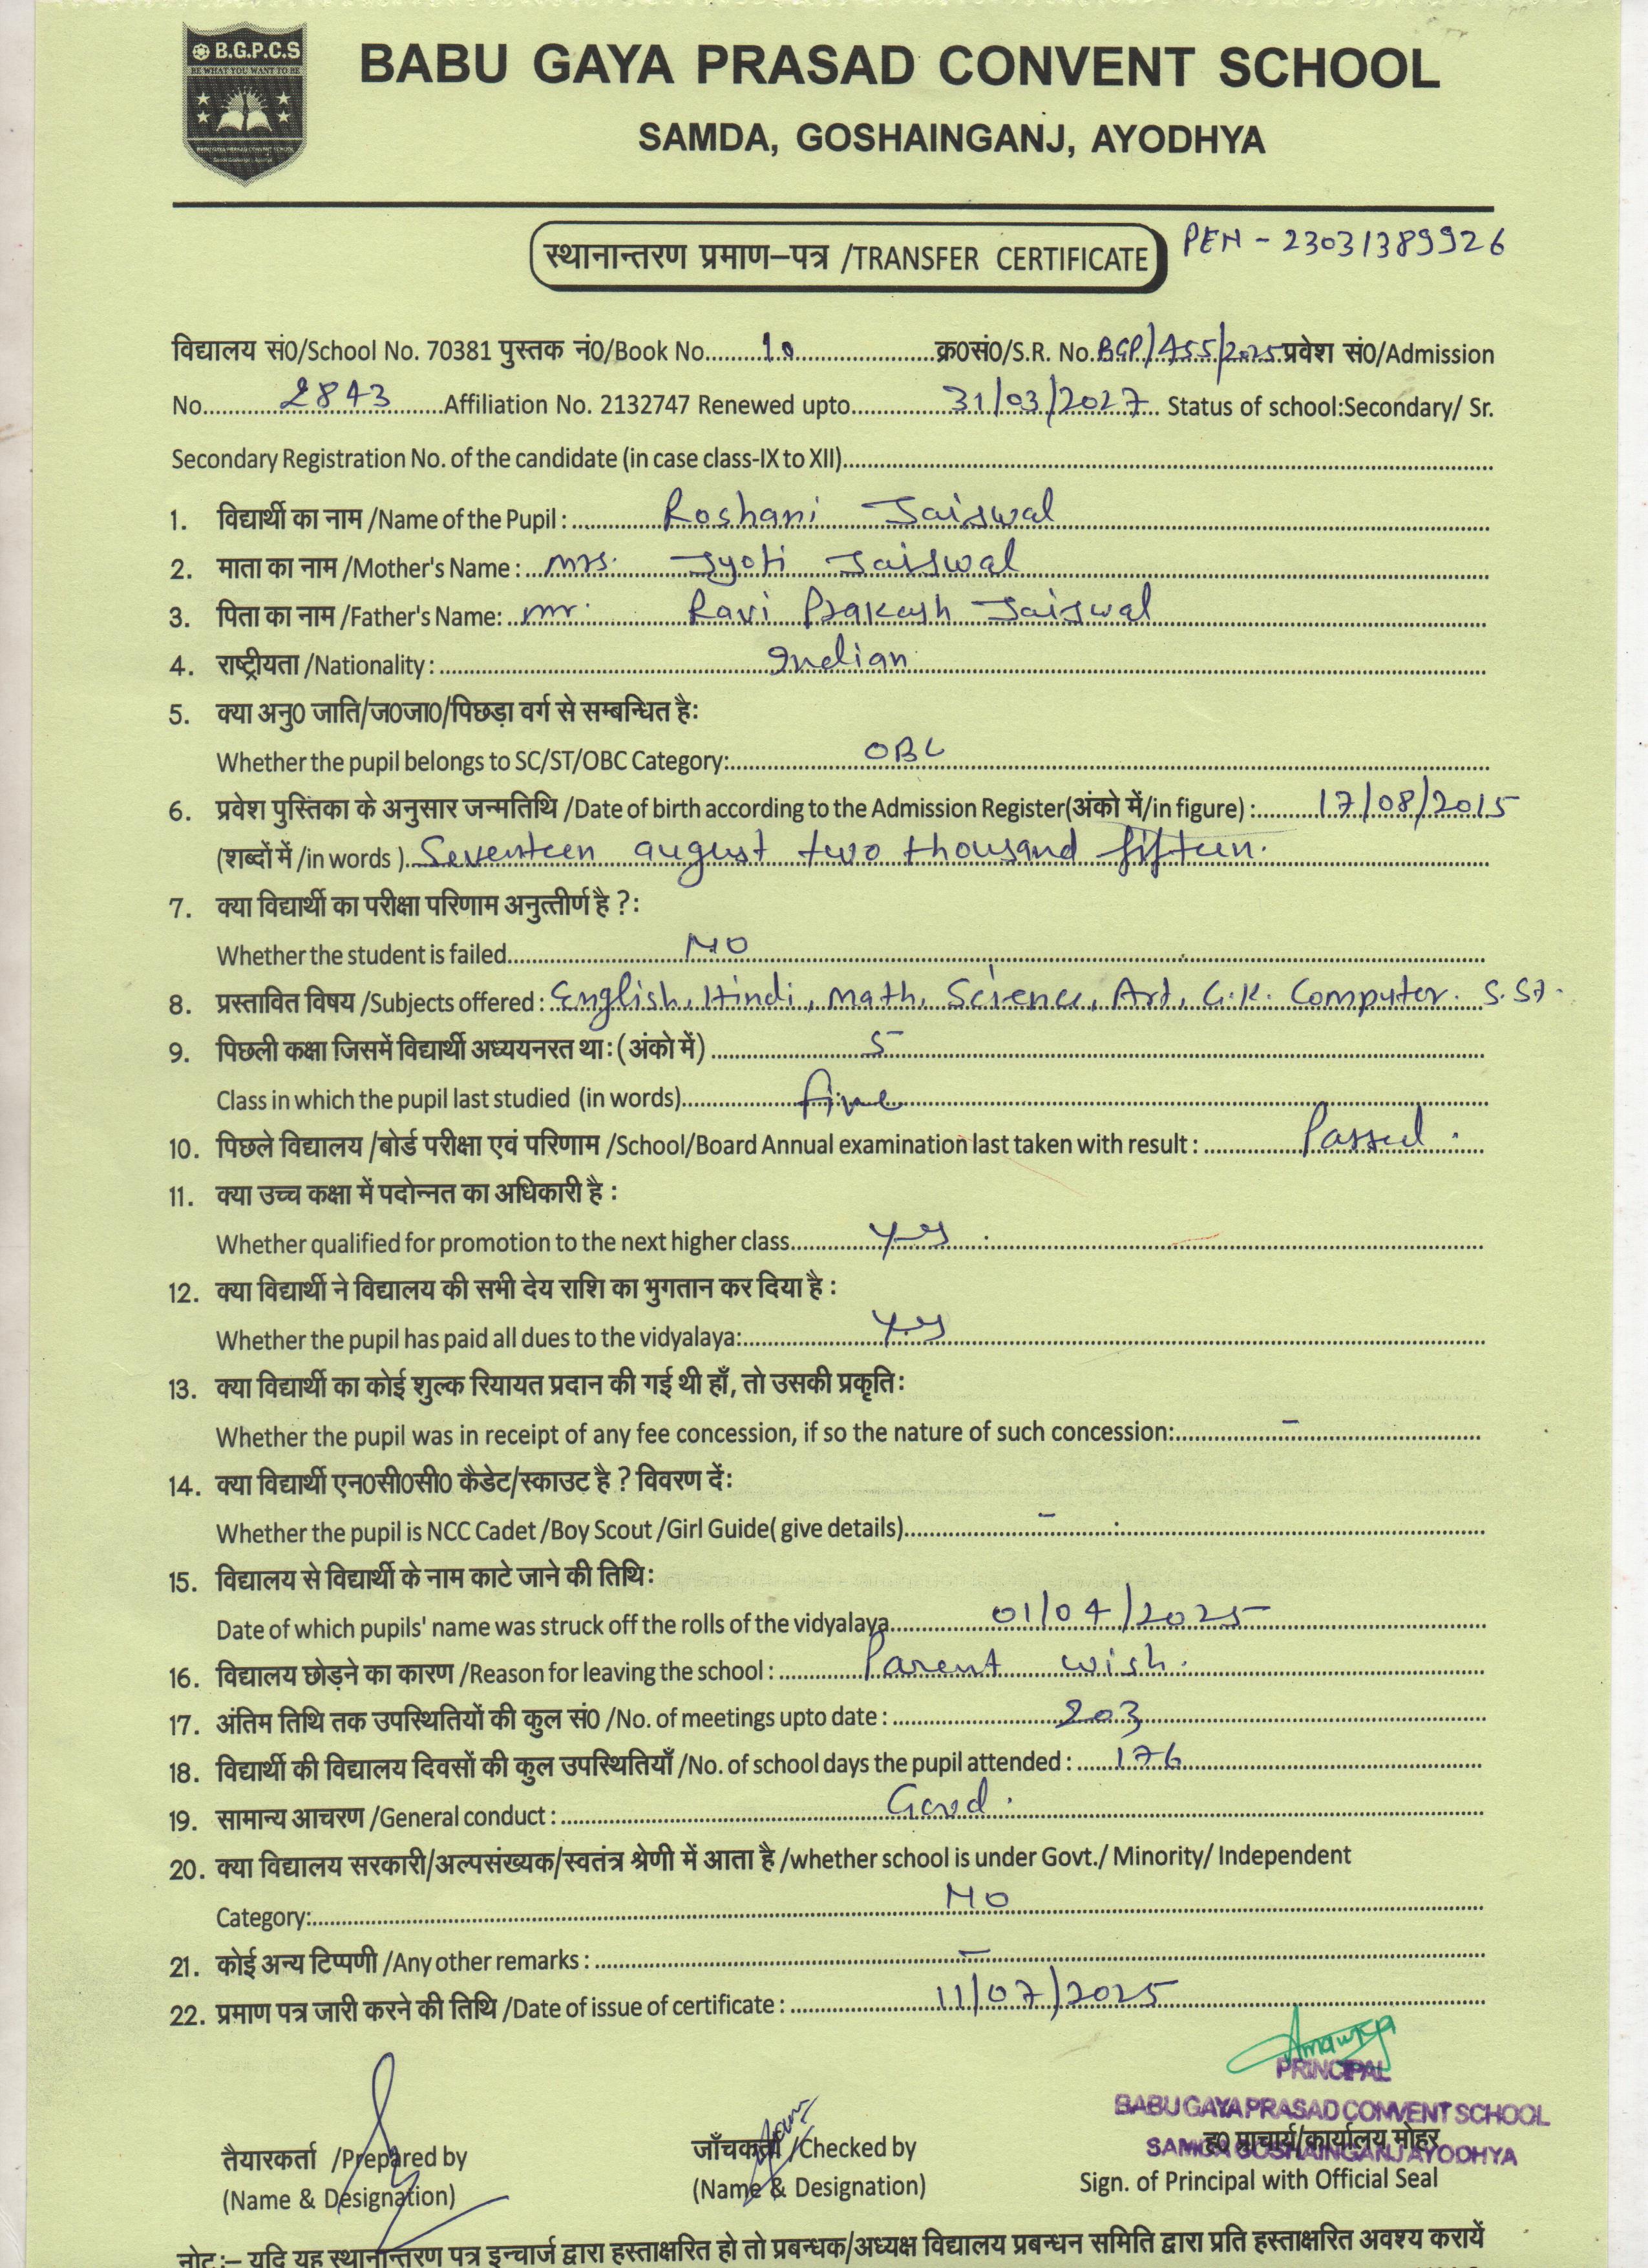 B.G.P.C.S
BE WHAT YOU WANT TO BE
BABU GAYA PRASAD CONVENT SCHOOL
SAMDA, GOSHAINGANJ, AYODHYA
स्थानान्तरण प्रमाण–पत्र /TRANSFER CERTIFICATE PEN - 23031389926
विद्यालय सं0/School No. 70381 पुस्तक नं0/Book No. 10 क्र0सं0/S.R. No. BGP/455/2025 प्रवेश सं0/Admission
No. 2843 Affiliation No. 2132747 Renewed upto 31/03/2027 Status of school:Secondary/ Sr.
Secondary Registration No. of the candidate (in case class-IX to XII)
1. विद्यार्थी का नाम /Name of the Pupil : Roshani Jaiswal
2. माता का नाम /Mother's Name : Mrs. Jyoti Jaiswal
3. पिता का नाम /Father's Name: Mr. Ravi Prakash Jaiswal
4. राष्ट्रीयता /Nationality : Indian
5. क्या अनु0 जाति/ज0जा0/पिछड़ा वर्ग से सम्बन्धित है:
Whether the pupil belongs to SC/ST/OBC Category: OBC
6. प्रवेश पुस्तिका के अनुसार जन्मतिथि /Date of birth according to the Admission Register(अंको में/in figure) : 17/08/2015
(शब्दों में /in words ) Seventeen august two thousand fifteen.
7. क्या विद्यार्थी का परीक्षा परिणाम अनुत्तीर्ण है ?:
Whether the student is failed NO
8. प्रस्तावित विषय /Subjects offered : English, Hindi, Math, Science, Art, G.K. Computer. S.St.
9. पिछली कक्षा जिसमें विद्यार्थी अध्ययनरत था: (अंको में) 5
Class in which the pupil last studied (in words) five
10. पिछले विद्यालय /बोर्ड परीक्षा एवं परिणाम /School/Board Annual examination last taken with result : Passed.
11. क्या उच्च कक्षा में पदोन्नत का अधिकारी है :
Whether qualified for promotion to the next higher class Yes
12. क्या विद्यार्थी ने विद्यालय की सभी देय राशि का भुगतान कर दिया है :
Whether the pupil has paid all dues to the vidyalaya: Yes
13. क्या विद्यार्थी का कोई शुल्क रियायत प्रदान की गई थी हाँ, तो उसकी प्रकृति:
Whether the pupil was in receipt of any fee concession, if so the nature of such concession: -
14. क्या विद्यार्थी एन0सी0सी0 कैडेट/स्काउट है ? विवरण दें:
Whether the pupil is NCC Cadet /Boy Scout /Girl Guide( give details) -
15. विद्यालय से विद्यार्थी के नाम काटे जाने की तिथि:
Date of which pupils' name was struck off the rolls of the vidyalaya 01/04/2025
16. विद्यालय छोड़ने का कारण /Reason for leaving the school : Parent wish.
17. अंतिम तिथि तक उपस्थितियों की कुल सं0 /No. of meetings upto date : 203
18. विद्यार्थी की विद्यालय दिवसों की कुल उपस्थितियाँ /No. of school days the pupil attended : 176
19. सामान्य आचरण /General conduct : Good.
20. क्या विद्यालय सरकारी/अल्पसंख्यक/स्वतंत्र श्रेणी में आता है /whether school is under Govt./ Minority/ Independent
Category: NO
21. कोई अन्य टिप्पणी /Any other remarks : -
22. प्रमाण पत्र जारी करने की तिथि /Date of issue of certificate : 11/07/2025
PRINCIPAL
BABU GAYA PRASAD CONVENT SCHOOL
SAMDA GOSHAINGANJ AYODHYA
तैयारकर्ता /Prepared by जाँचकर्ता /Checked by ह0 प्राचार्य/कार्यालय मोहर
(Name & Designation) (Name & Designation) Sign. of Principal with Official Seal
नोट:– यदि यह स्थानान्तरण पत्र इन्चार्ज द्वारा हस्ताक्षरित हो तो प्रबन्धक/अध्यक्ष विद्यालय प्रबन्धन समिति द्वारा प्रति हस्ताक्षरित अवश्य करायें